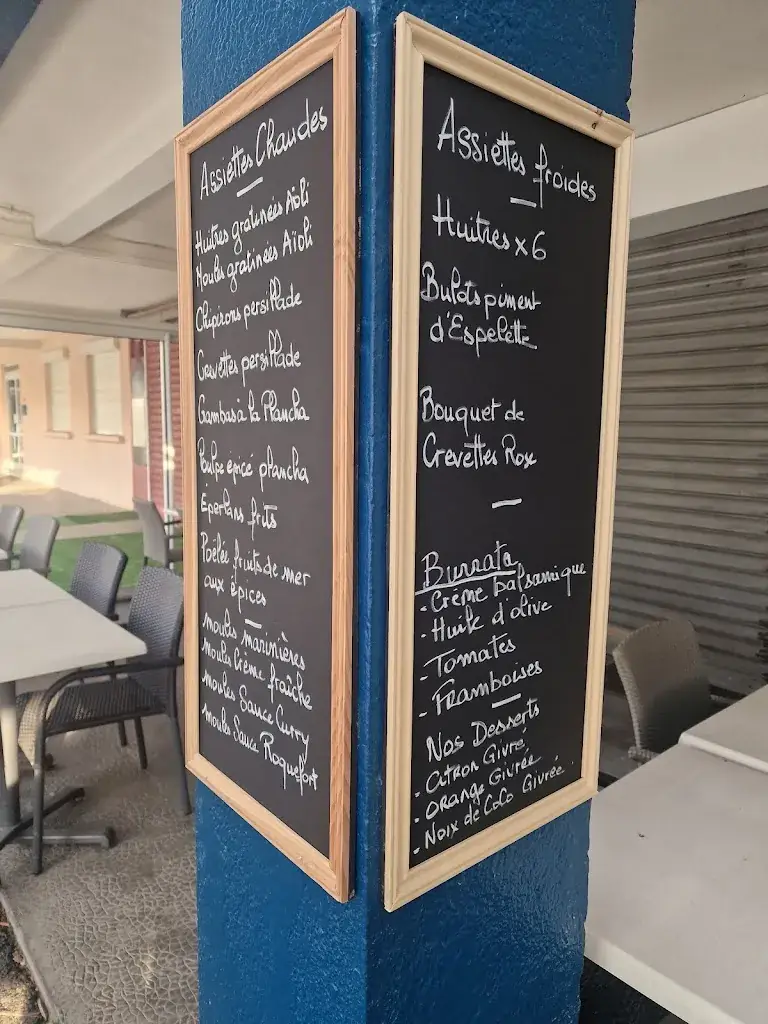 Assiettes Chaudes
Huîtres gratinées Aïoli
Moules gratinées Aïoli
Chipirons persillade
Crevettes persillade
Gambas à la Plancha
Poulpe épicé plancha
Éperlans frits
Poêlée fruits de mer
aux épices
moules marinières
moules Crème fraîche
moules Sauce Curry
moules Sauce Roquefort
Assiettes froides
Huitres x 6
Bulots piment
d'Espelette
Bouquet de
Crevettes Rose
Burrata
- Crème balsamique
- Huile d'olive
- Tomates
- Framboises
Nos Desserts
- Citron Givré
- Orange Givrée
- Noix de CoCo Givrée